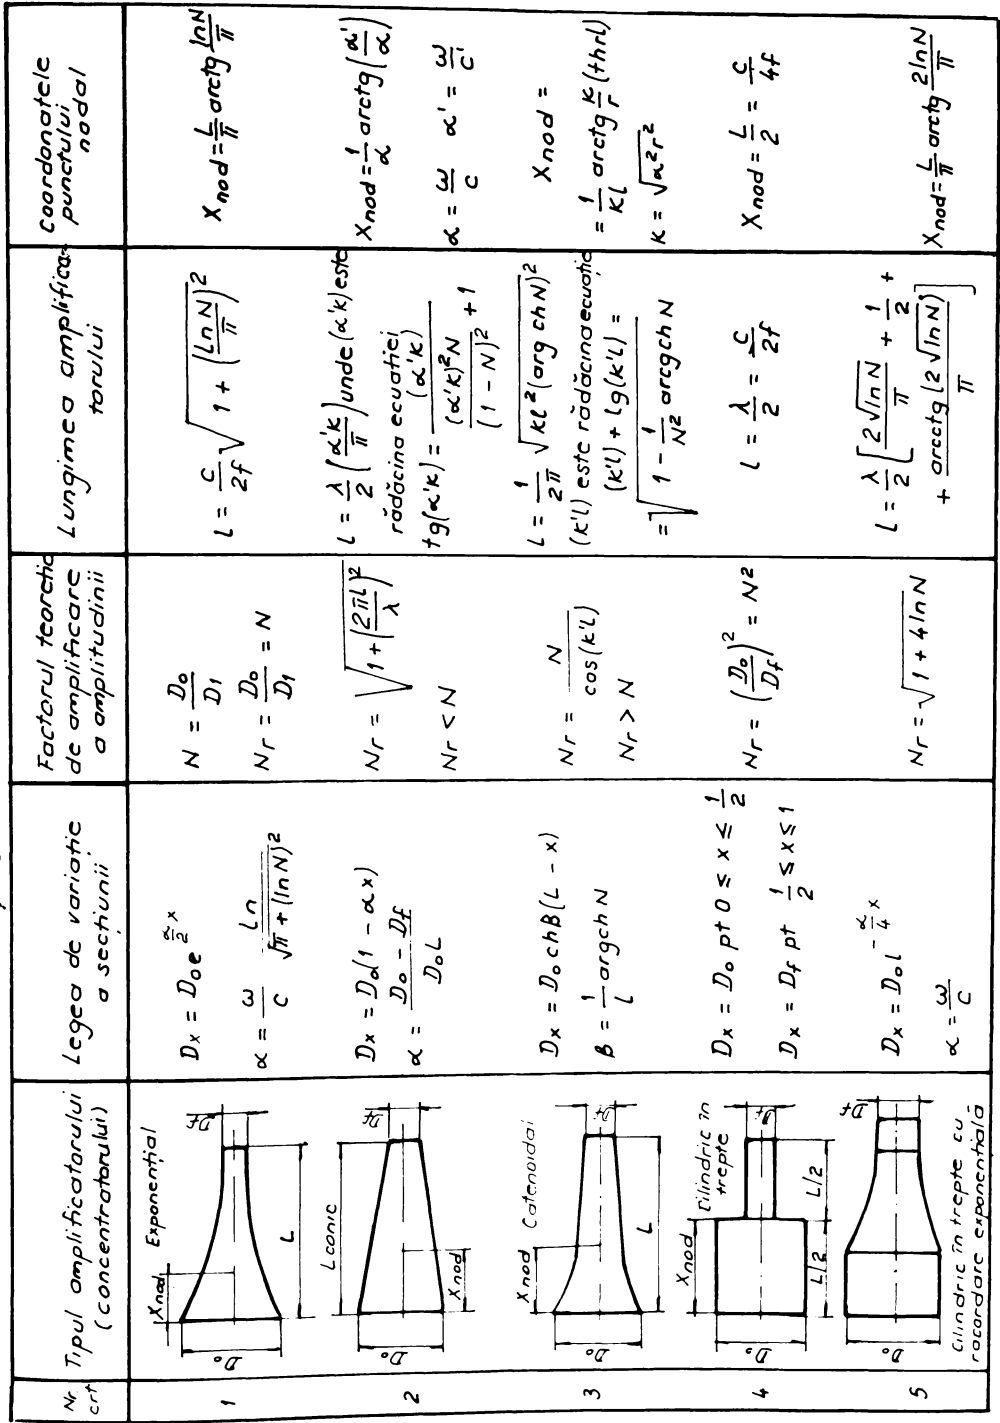 Nr. crt
Tipul amplificatorului
(concentratorului)
Legea de variație
a secțiunii
Factorul teoretic
de amplificare
a amplitudinii
Lungimea amplifica-
torului
Coordonatele
punctului
nodal
1
Exponențial
Xnod
L
Do
Df
Dx = Doe^(α/2 x)
α = ω/c ln/√π + (lnN)²
N = Do/D1
Nr = Do/D1 = N
L = c/2f √1 + (lnN/π)²
Xnod = L/π arctg lnN/π
2
L conic
Xnod
Do
Df
Dx = Do(1 - αx)
α = Do - Df/DoL
Nr = √1 + (2πL/λ)²
Nr < N
L = λ/2 (α'K/π) unde (α'K) este
rădăcina ecuatiei
tg(α'K) = (α'K)/(α'K)²N/(1 - N)² + 1
Xnod = 1/α arctg (α'/α)
α = ω/c α' = ω/c'
3
Catenoidal
Xnod
L
Do
Df
Dx = Do chB(L - x)
β = 1/L argchN
Nr = N/cos(k'L)
Nr > N
L = 1/2π √kl²(arg chN)²
(k'l) este rădăcina ecuație
(k'l) + lg(k'l) =
= √1 - 1/N² argchN
Xnod =
= 1/Kl arctg K/r (thrl)
K = √α²r²
4
Cilindric în
trepte
Xnod
L/2
L/2
Do
Df
Dx = Do pt 0 ≤ x ≤ 1/2
Dx = Df pt 1/2 ≤ x ≤ 1
Nr = (Do/Df)² = N²
L = λ/2 = c/2f
Xnod = L/2 = c/4f
5
Do
Df
Cilindric în trepte cu
racordare exponențială
Dx = Dol^(-α/4 x)
α = ω/c
Nr = √1 + 4lnN
L = λ/2 [2√lnN/π + 1/2 +
+ arcctg(2√lnN)/π]
Xnod = L/π arctg 2lnN/π